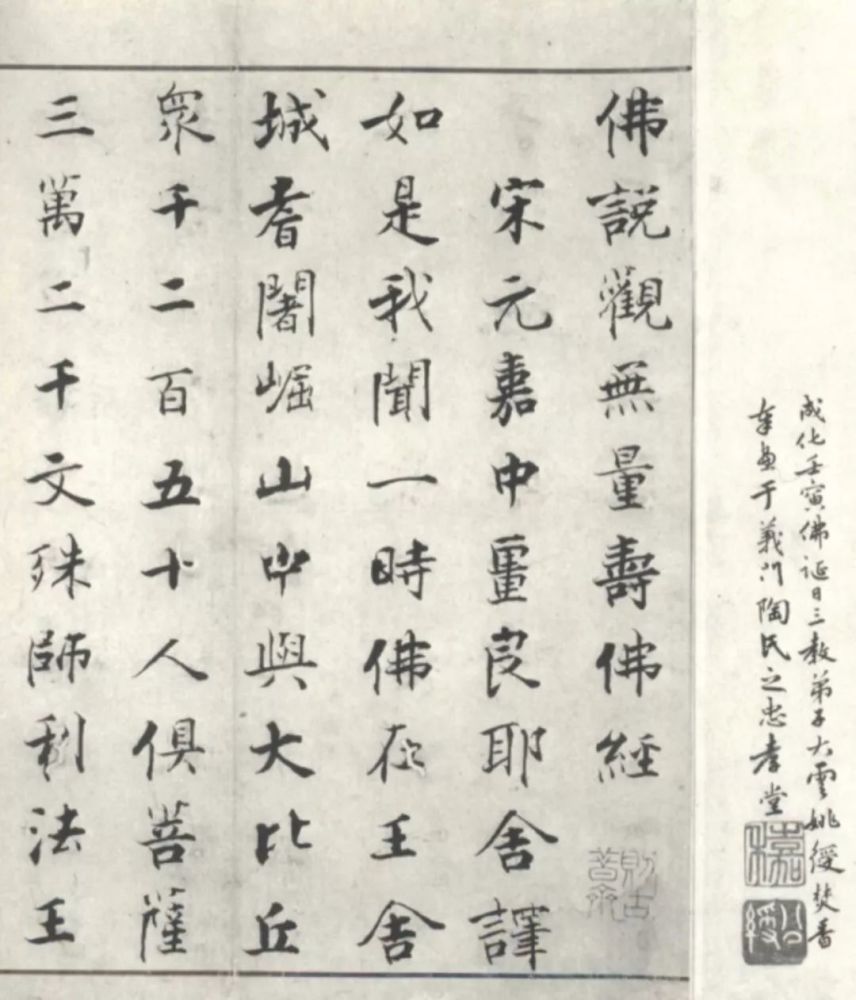 成化壬寅佛誕日三教弟子大雲姚綬焚香
奉畫于義門陶氏之忠孝堂
公綬
佛說觀無量壽佛經
宋元嘉中畺良耶舍譯
如是我聞一時佛在王舍
城耆闍崛山中與大比丘
眾千二百五十人俱菩薩
三萬二千文殊師利法王